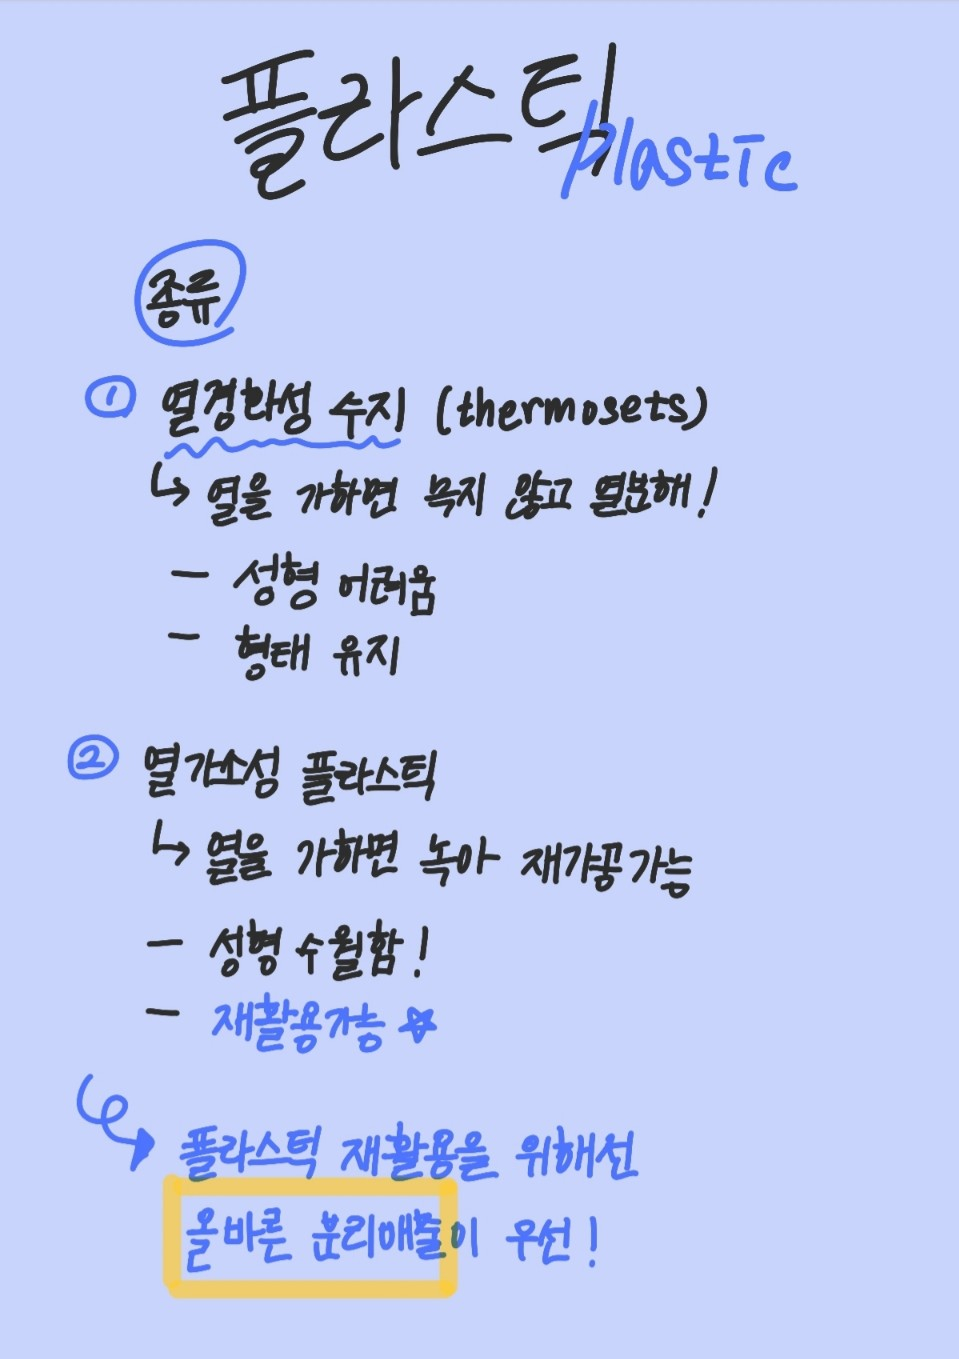 플라스틱
plastic
종류
① 열경화성 수지 (thermosets)
↳ 열을 가하면 녹지 않고 열분해!
- 성형 어려움
- 형태 유지
② 열가소성 플라스틱
↳ 열을 가하면 녹아 재가공가능
- 성형 수월함!
- 재활용가능 ☆
플라스틱 재활용을 위해선
올바른 분리배출이 우선!